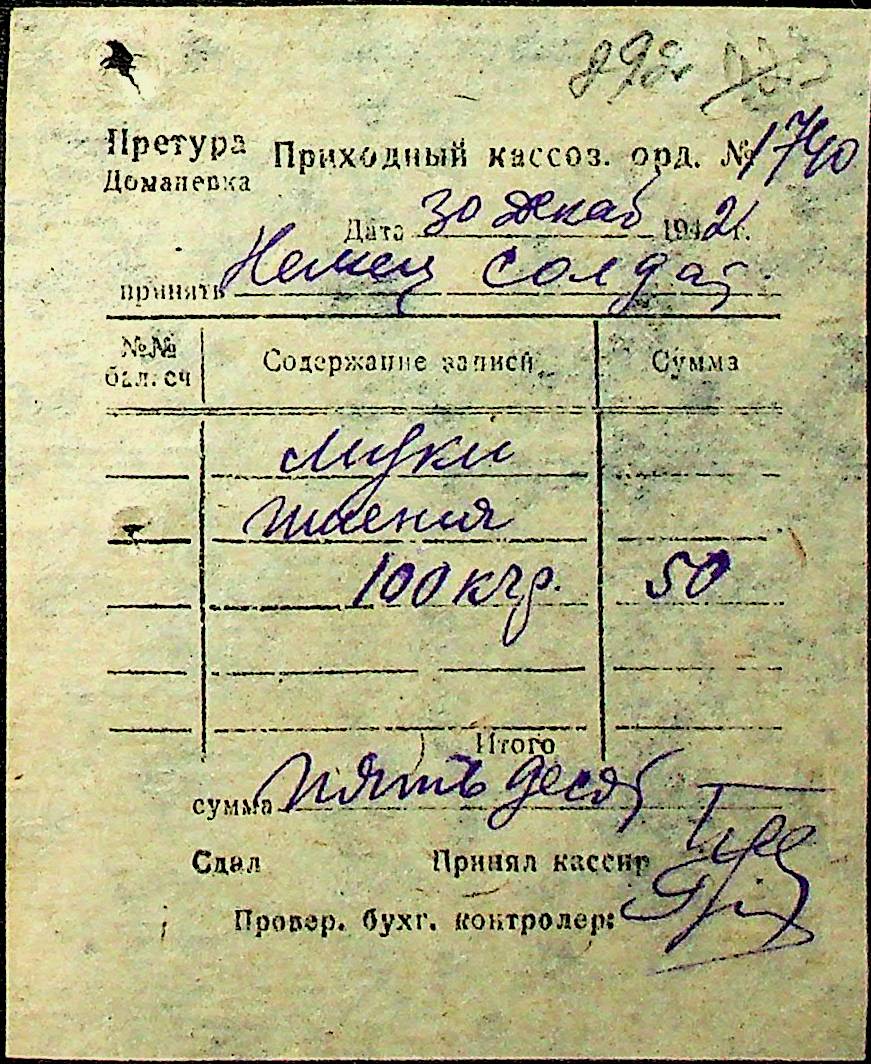 898
Претура Приходный кассоз. орд. № 1740
Доманевка
Дата 30 декаб 1942 г.
принять Немец солдат
№№ бал. сч Содержание записи Сумма
муки
100 кгр. 50
Итого
сумма пять десят
Сдал Принял кассир
Провер. бухг. контролер: